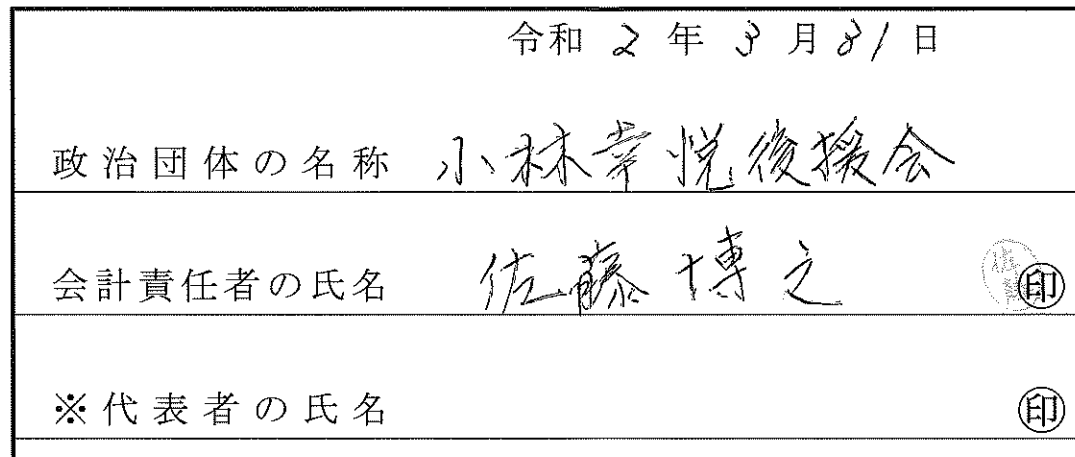 令和 2 年 3 月 31 日
政治団体の名称 小林幸悦後援会
会計責任者の氏名 佐藤博之 佐藤 ㊞
※代表者の氏名 ㊞